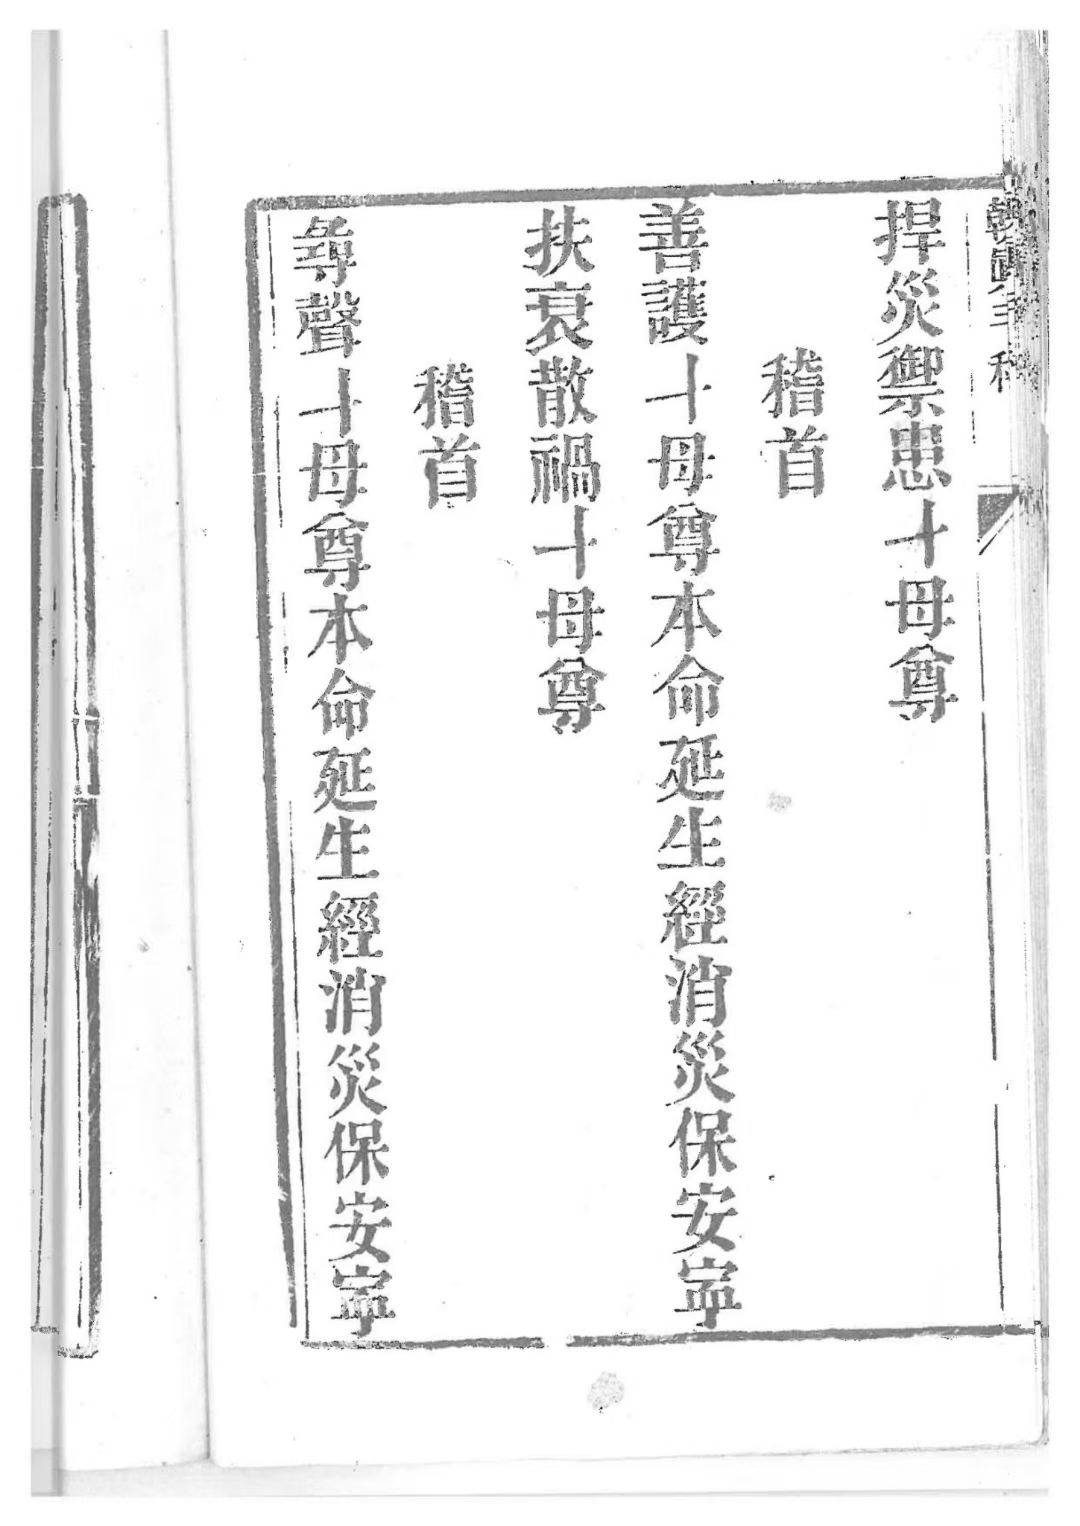 捍災禦患十母尊
稽首
善護十母尊本命延生經消災保安寍
扶衰散禍十母尊
稽首
尋聲十母尊本命延生經消災保安寍